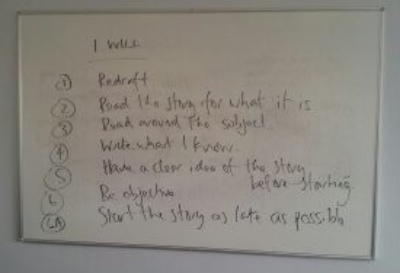 I will
1 Redraft
2 Read the story for what it is
3 Read around the subject.
4 Write what I know.
5 Have a clear idea of the story
before starting
6 Be objective
6A Start the story as late as possible